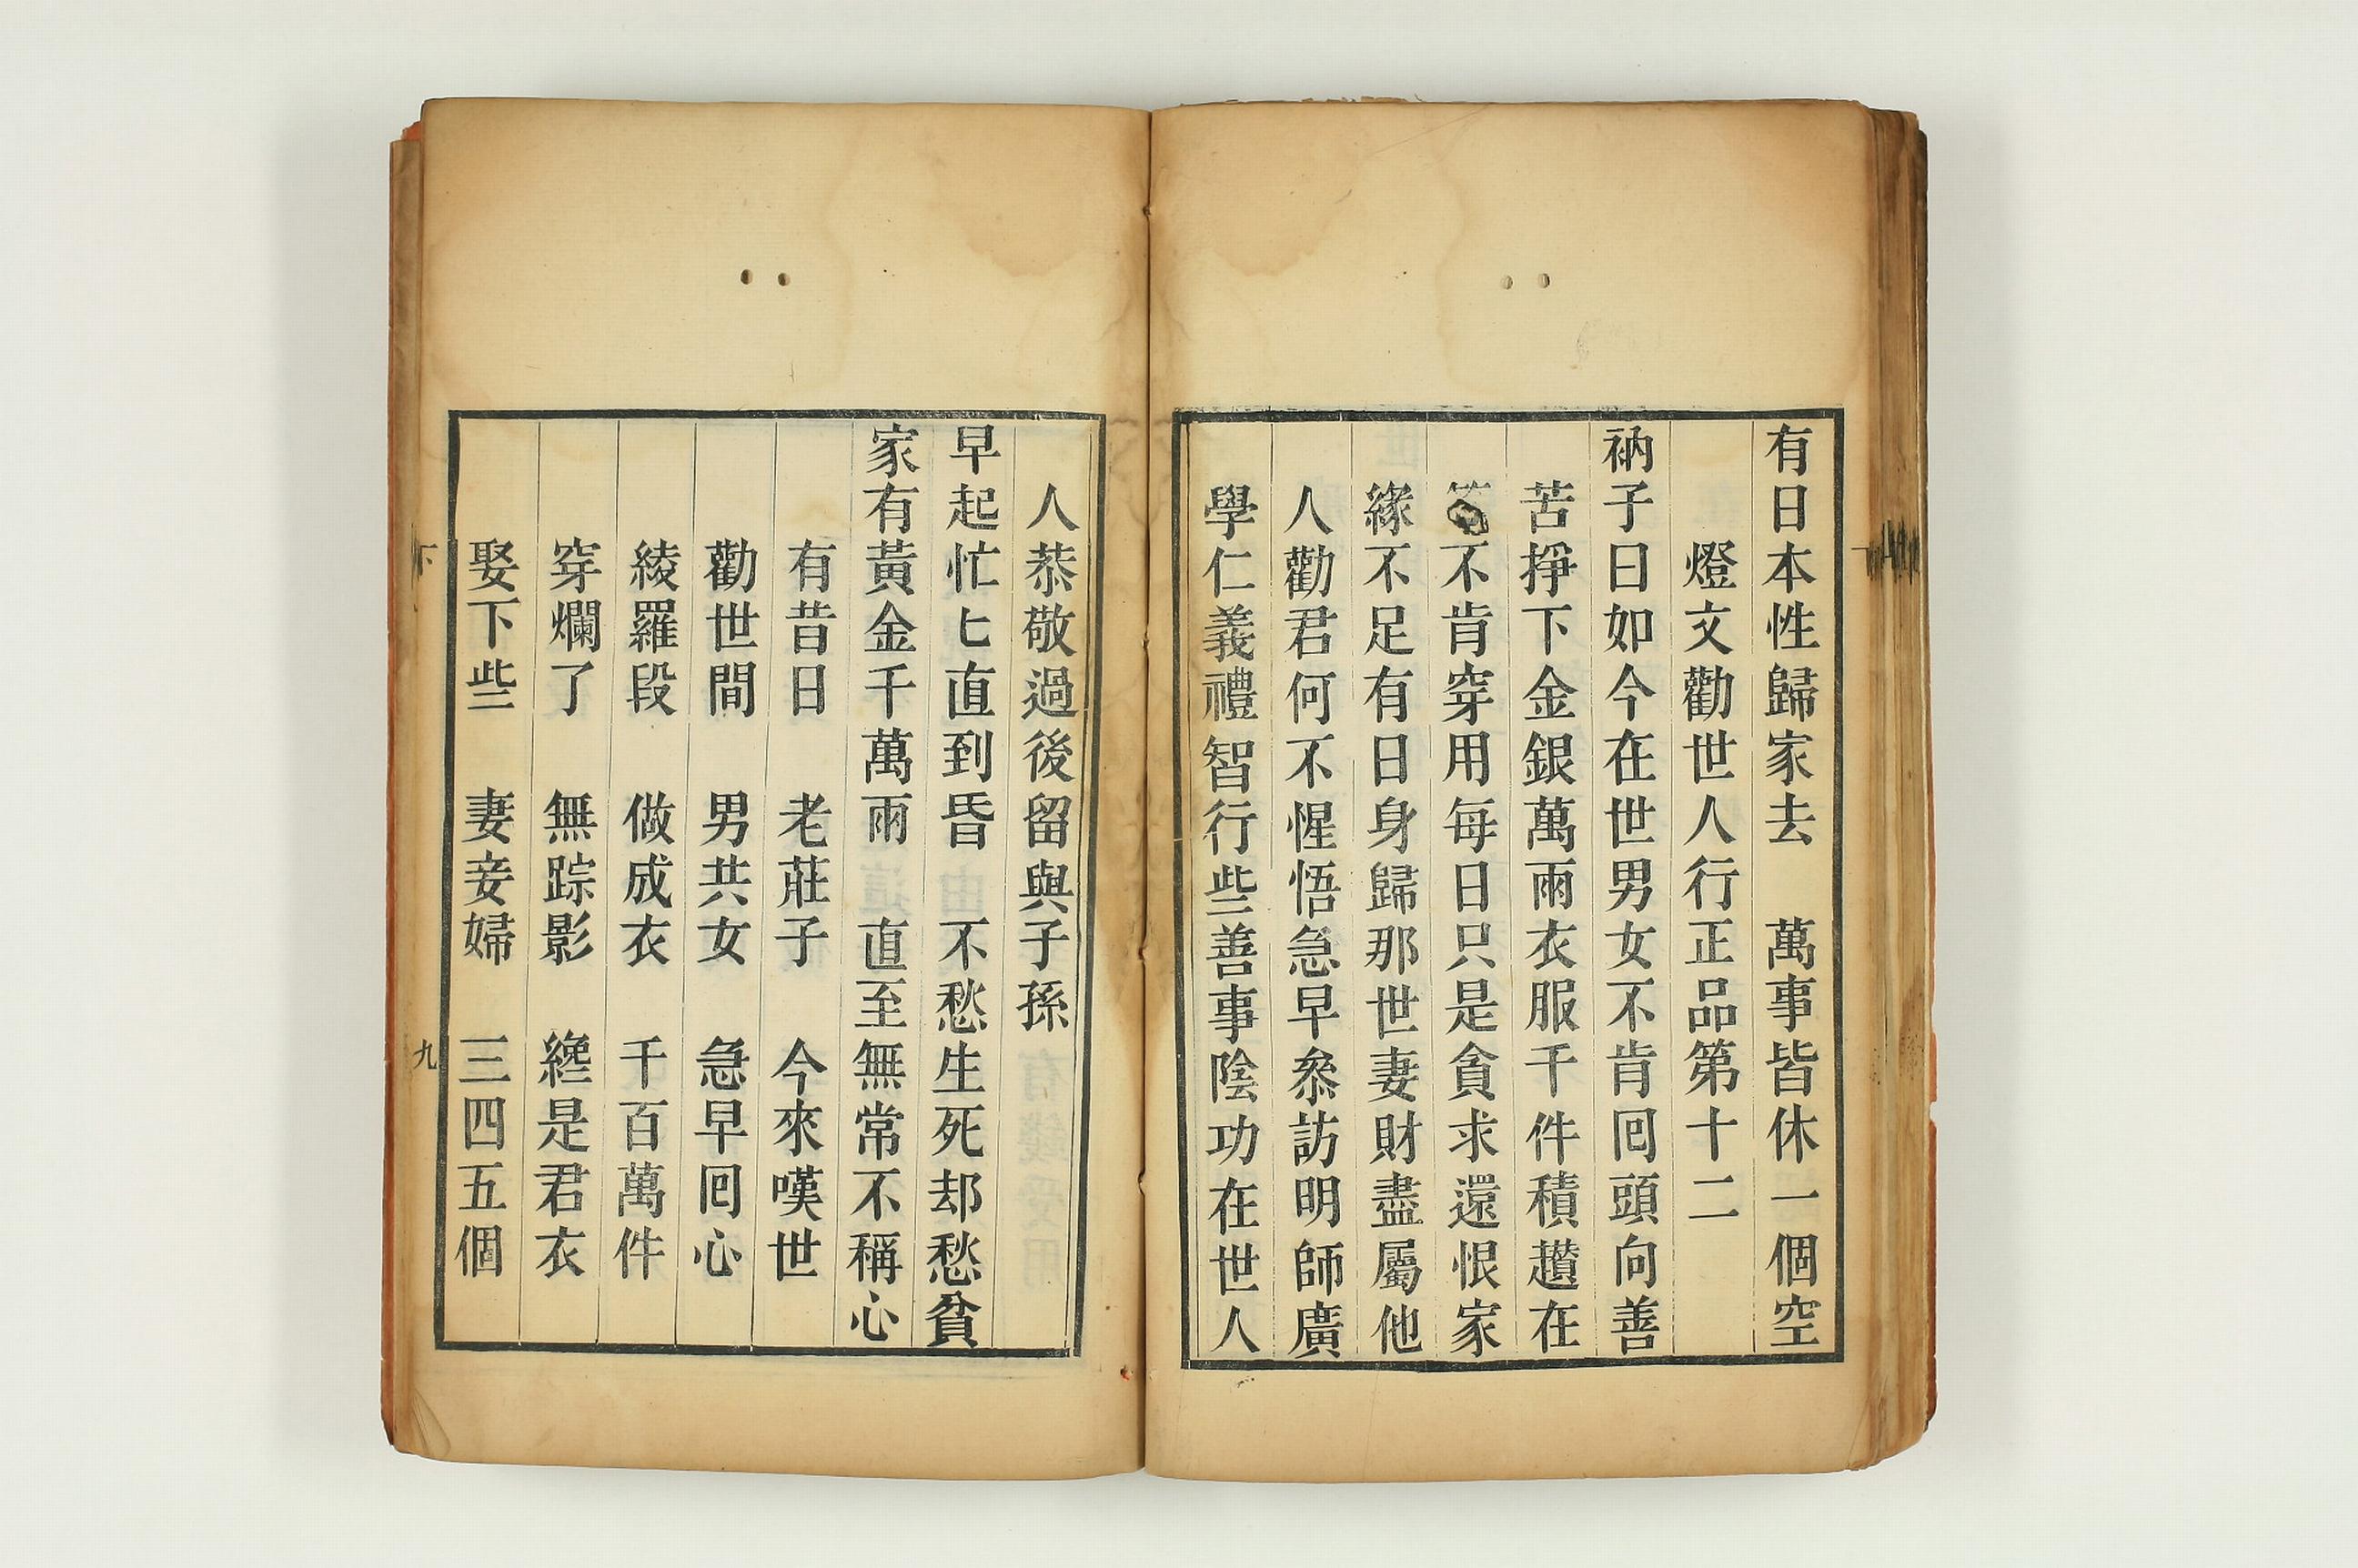 有日本性歸家去　萬事皆休一個空
燈文勸世人行正品第十二
衲子曰如今在世男女不肯囘頭向善
苦掙下金銀萬兩衣服千件積趲在
不肯穿用每日只是貪求還恨家
緣不足有日身歸那世妻財盡屬他
人勸君何不惺悟急早叅訪明師廣
學仁義禮智行些善事陰功在世人
人恭敬過後留與子孫
早起忙匕直到昏　不愁生死却愁貧
家有黃金千萬兩　直至無常不稱心
有昔日　老莊子　今來嘆世
勸世間　男共女　急早囘心
綾羅段　做成衣　千百萬件
穿爛了　無踪影　纔是君衣
娶下些　妻妾婦　三四五個
下
九